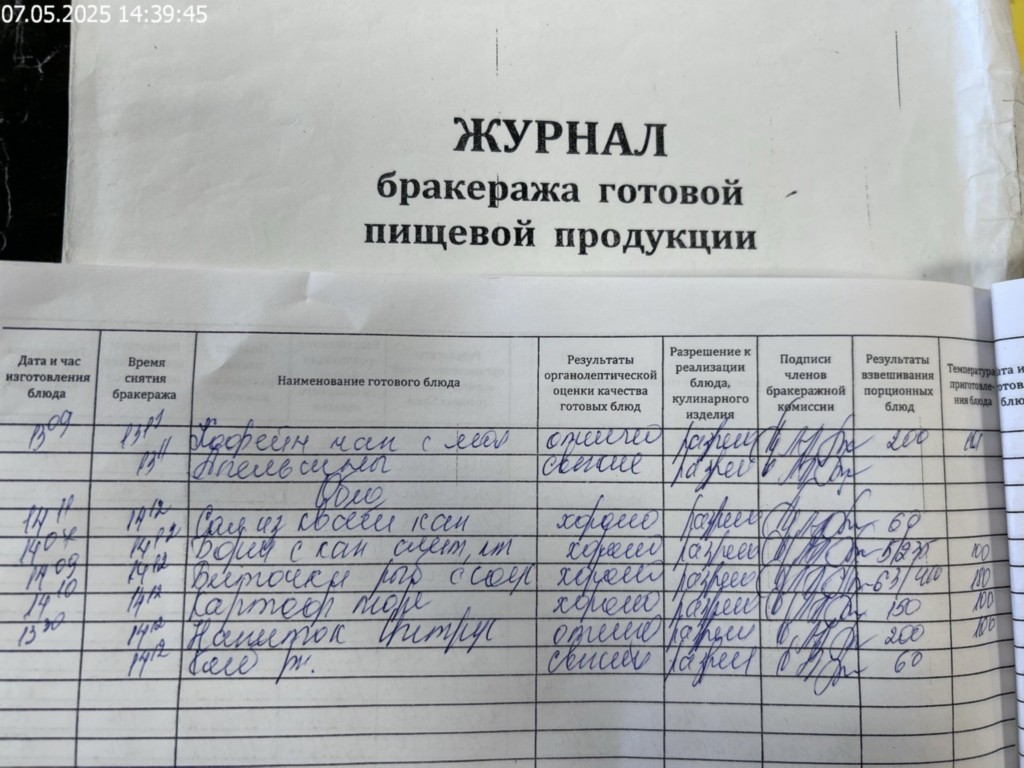 07.05.2025 14:39:45
ЖУРНАЛ
бракеража готовой
пищевой продукции
Дата и час изготовления блюда
Время снятия бракеража
Наименование готового блюда
Результаты органолептической оценки качества готовых блюд
Разрешение к реализации блюда, кулинарного изделия
Подписи членов бракеражной комиссии
Результаты взвешивания порционных блюд
Температура приготовле- ния блюда
13 09 13 11 Кофейн нап с мол отлично разреш 200
13 11 Апельсины свежие разреш
Обед
14 11 14 12 Сал из свеж кап хорошо разреш 60
14 07 14 12 Борщ с кап смет, хорошо разреш 5/235 100
14 09 14 12 Биточки рыб с соус хорошо разреш 63/
14 10 14 12 Картоф пюре хорошо разреш 150 100
13 30 14 12 Напиток Цитрус отлично разреш 200 100
14 12 Хлеб рж. свежий разреш 60